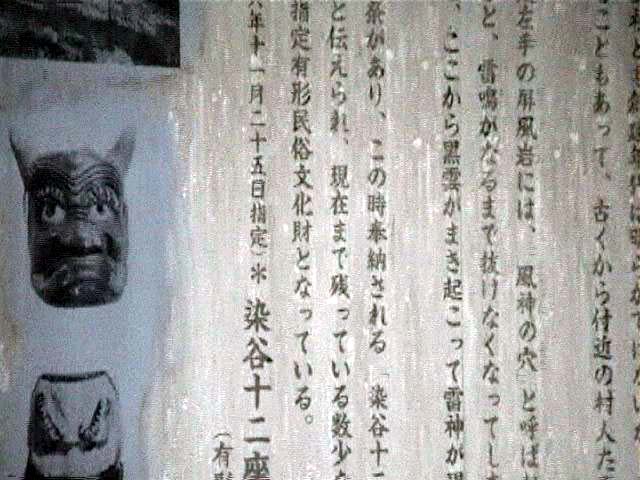 こともあって、古くから付近の村人た
左手の屏風岩には、「風神の穴」と呼ば
と、雷鳴がなるまで抜けなくなってしま
、ここから黒雲がまき起こって雷神が現
祭があり、この時奉納される「染谷十二
と伝えられ、現在まで残っている数少な
指定有形民俗文化財となっている。
六年十一月二十五日指定)＊
染谷十二座
(有形